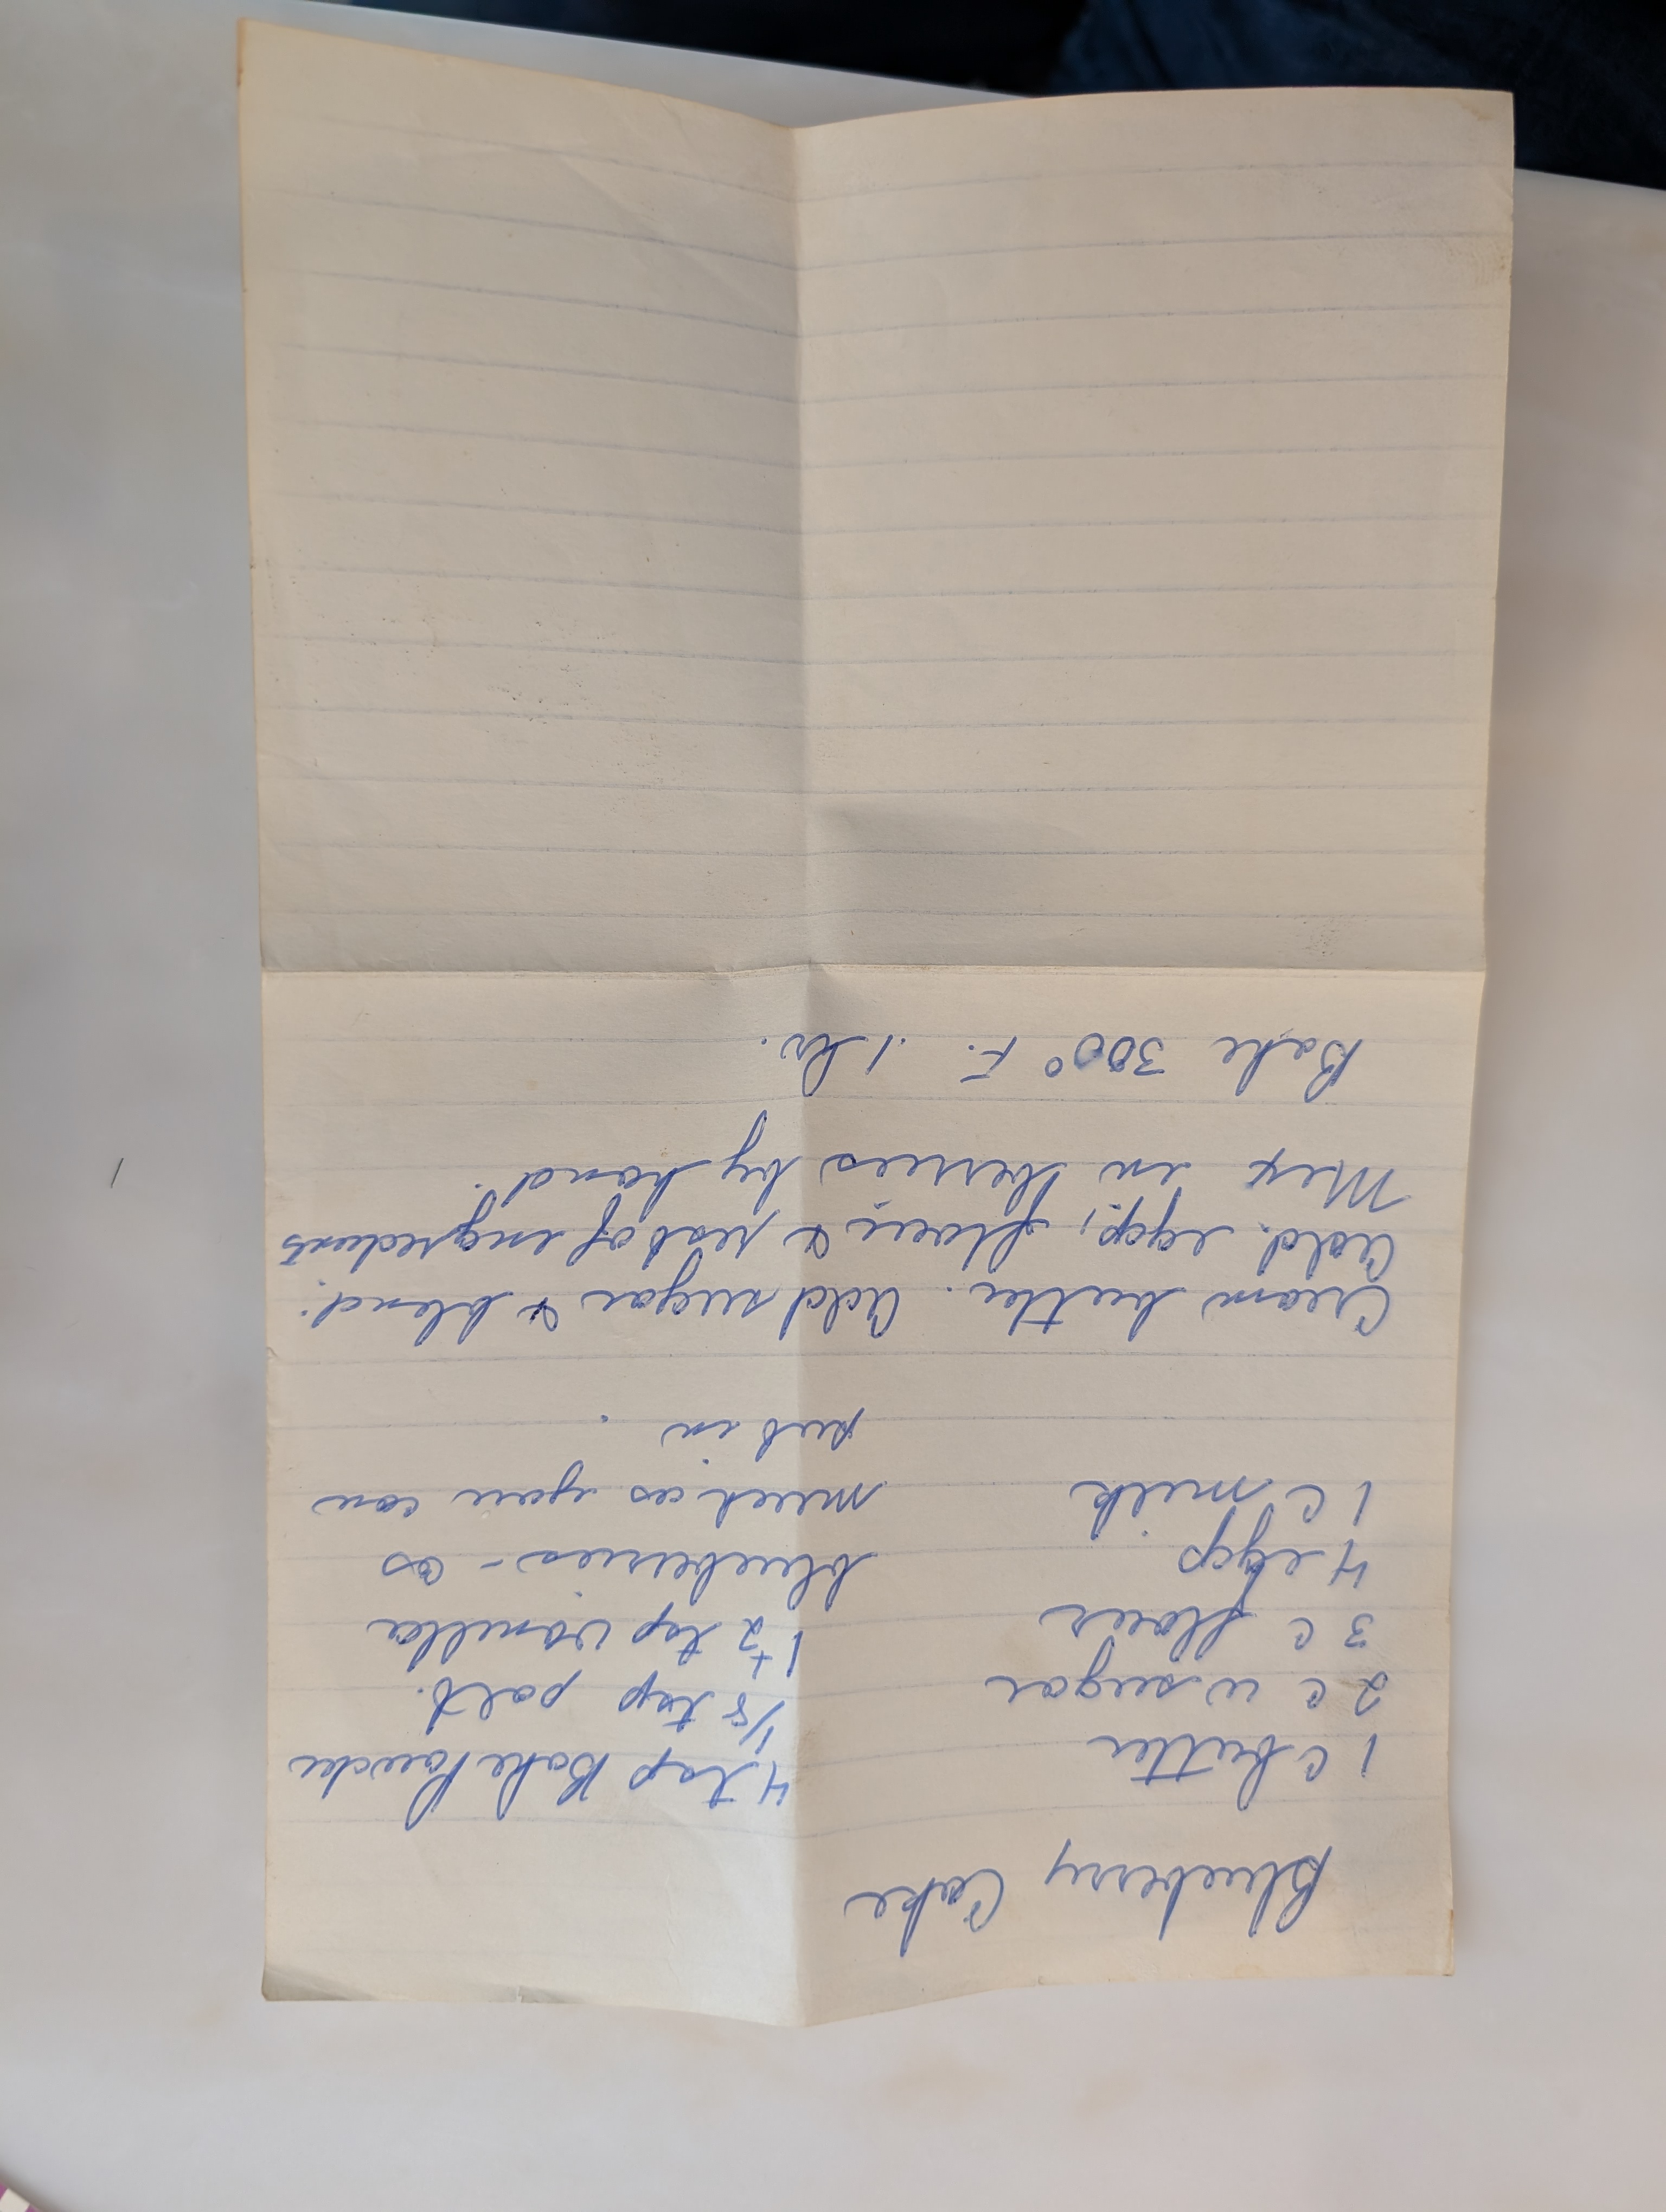 Blueberry Cake
1 c butter
2 c w. sugar
3 c flour
4 eggs
1 c milk
4 tsp Bake Powder
1/8 tsp salt.
1 + 2 tsp vanilla
blueberries - as
much as you can
put in.
Cream butter. Add sugar & blend.
Add. eggs, flour & rest of ingredients
Mix in berries by hand.
Bake 300° F. 1 hr.